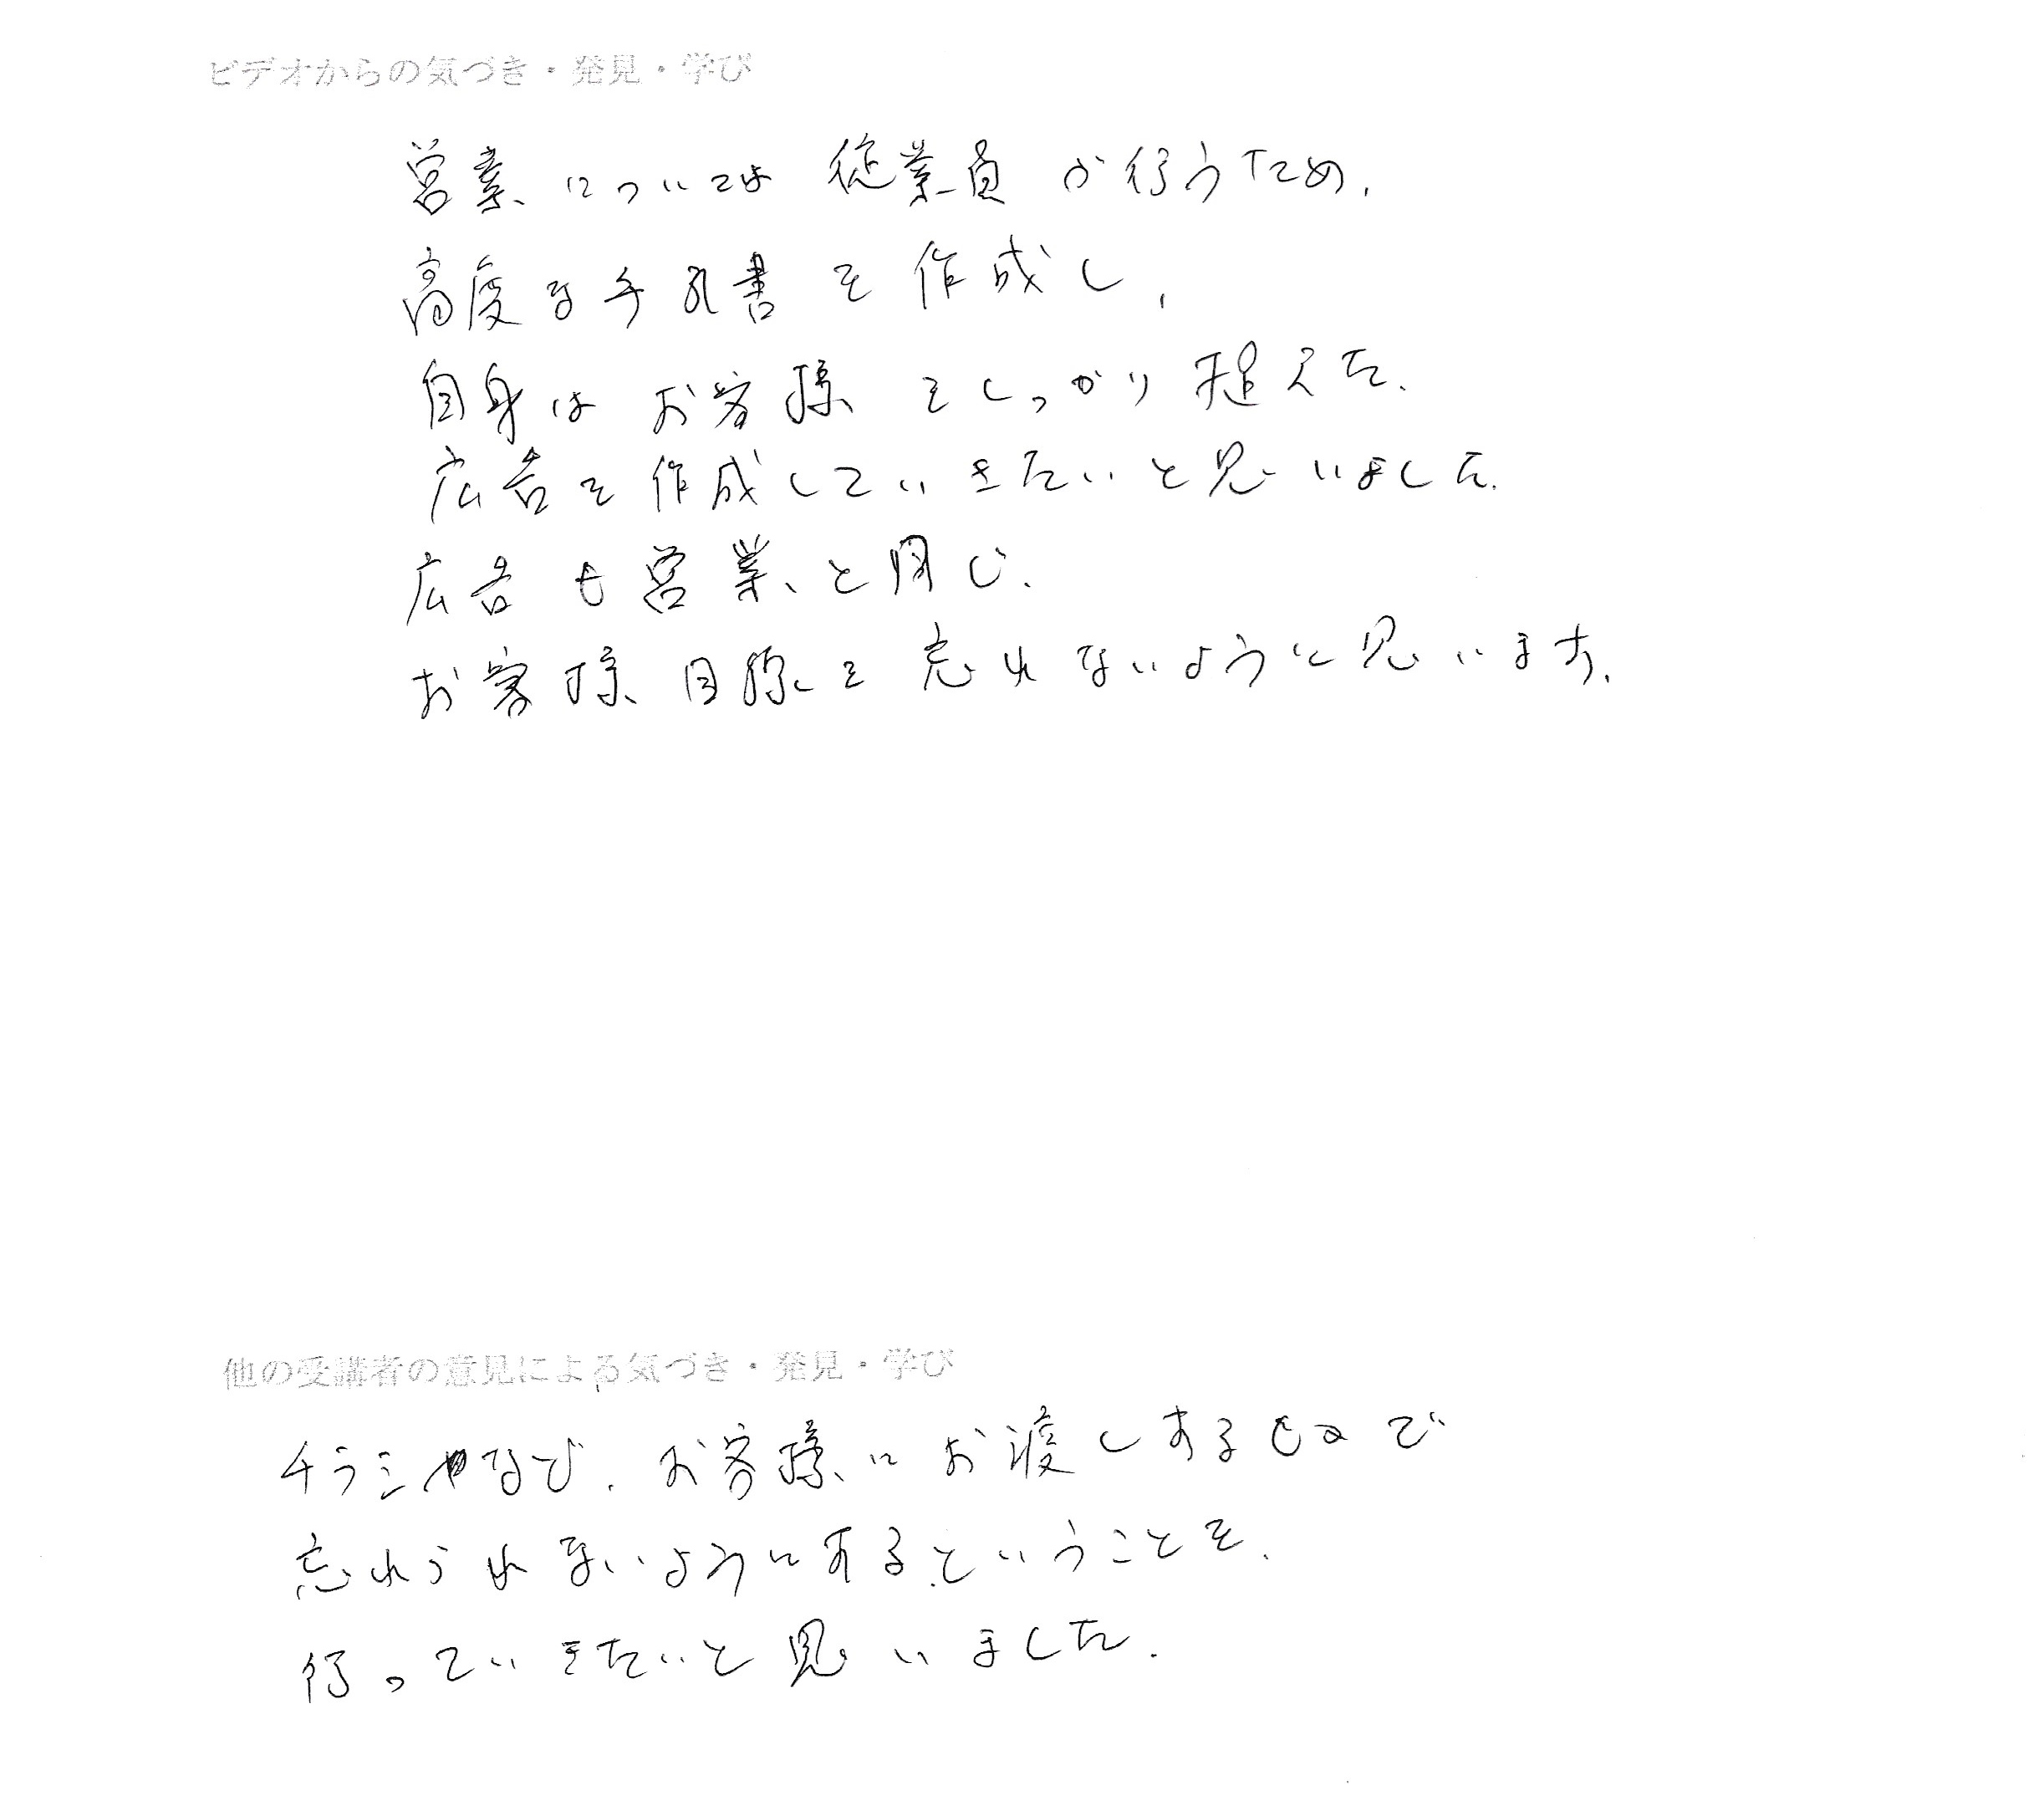 ビデオからの気づき・発見・学び
営業については従業員が行うため、
高度な手引書を作成し、
自身はお客様をしっかり捉えた、
広告を作成していきたいと思いました。
広告も営業と同じ、
お客様目線を忘れないように思います。
他の受講者の意見による気づき・発見・学び
チラシやなど、お客様にお渡しするもので
忘れられないようにするということを、
行っていきたいと思いました。